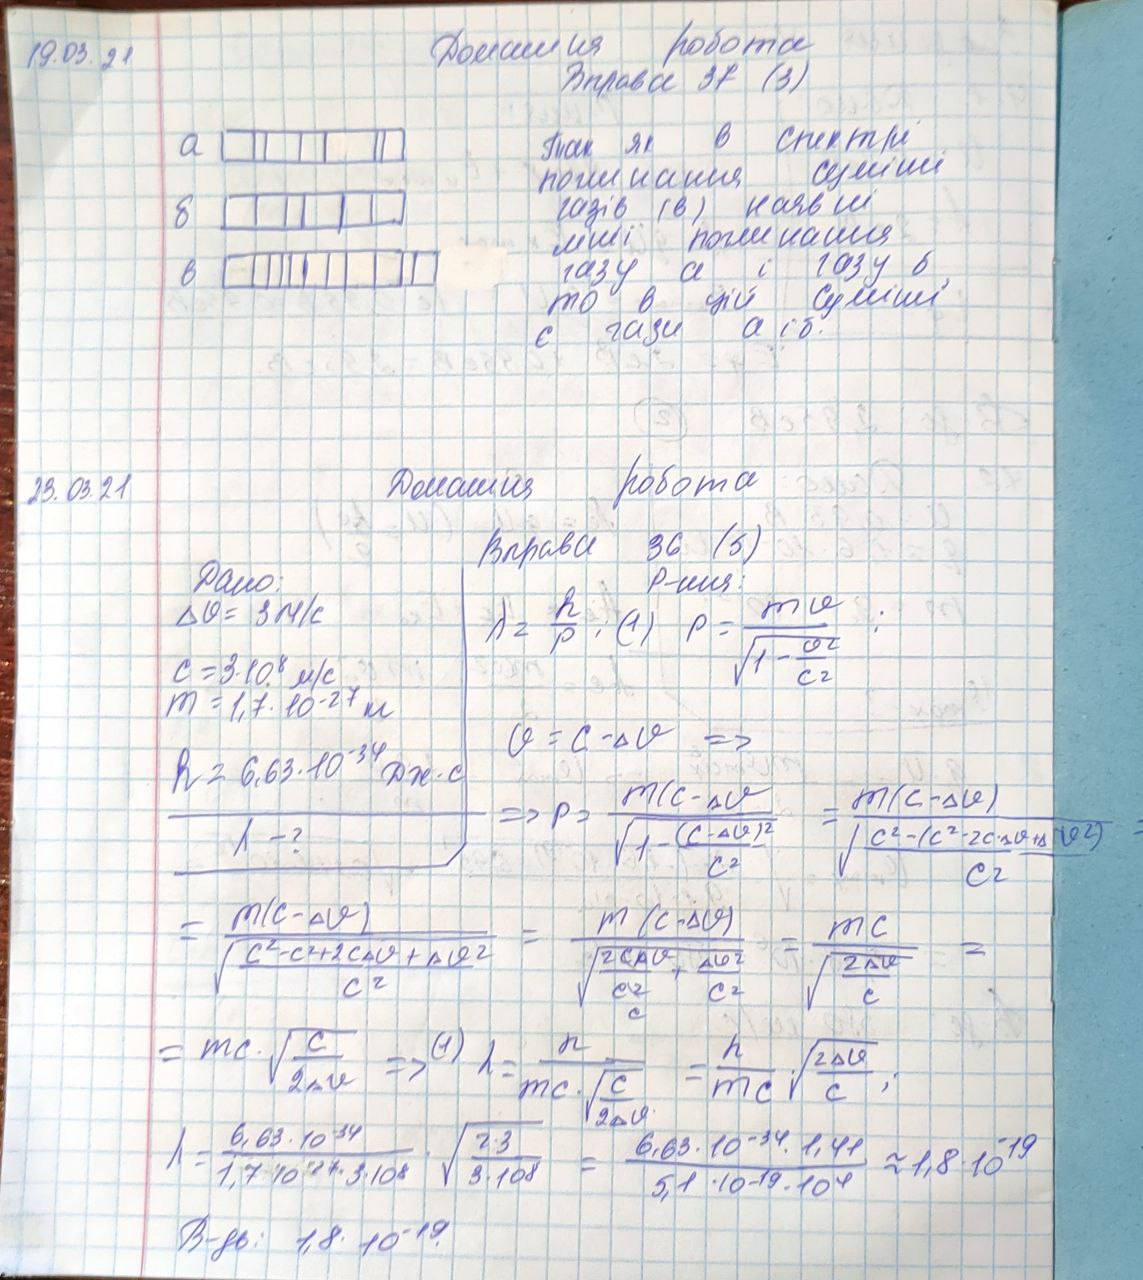 19.03.21 Домашня робота
Вправа 37 (3)
а
б
в
Так як в спектрі
поглинання суміші
газів (в) наявні
лінії поглинання
газу а і газу б,
то в цій суміші
є гази а і б.
23.03.21 Домашня робота
Вправа 36 (5)
Дано:
Δυ = 3 м/с
c = 3·10⁸ м/с
m = 1,7·10⁻²⁷ кг
h = 6,63·10⁻³⁴ Дж·с
λ - ?
Р-ння:
λ = h/p ; (1) p = mυ/√(1 - υ²/c²) ;
υ = c - Δυ =>
=> p = m(c-Δυ)/√(1-(c-Δυ)²/c²) = m(c-Δυ)/√((c²-(c²-2cΔυ+Δυ²))/c²)
= m(c-Δυ)/√((c²-c²+2cΔυ+Δυ²)/c²) = m(c-Δυ)/√(2cΔυ/c² + Δυ²/c²) = mc/√(2Δυ/c) =
= mc·√(c/2Δυ) =>(1) λ = h/(mc·√(c/2Δυ)) = h/mc·√(2Δυ/c) ;
λ = 6,63·10⁻³⁴/(1,7·10⁻²⁷·3·10⁸)·√(2·3/3·10⁸) = 6,63·10⁻³⁴·1,41/(5,1·10⁻¹⁹·10⁴) ≈ 1,8·10⁻¹⁹
В-дь: 1,8·10⁻¹⁹.